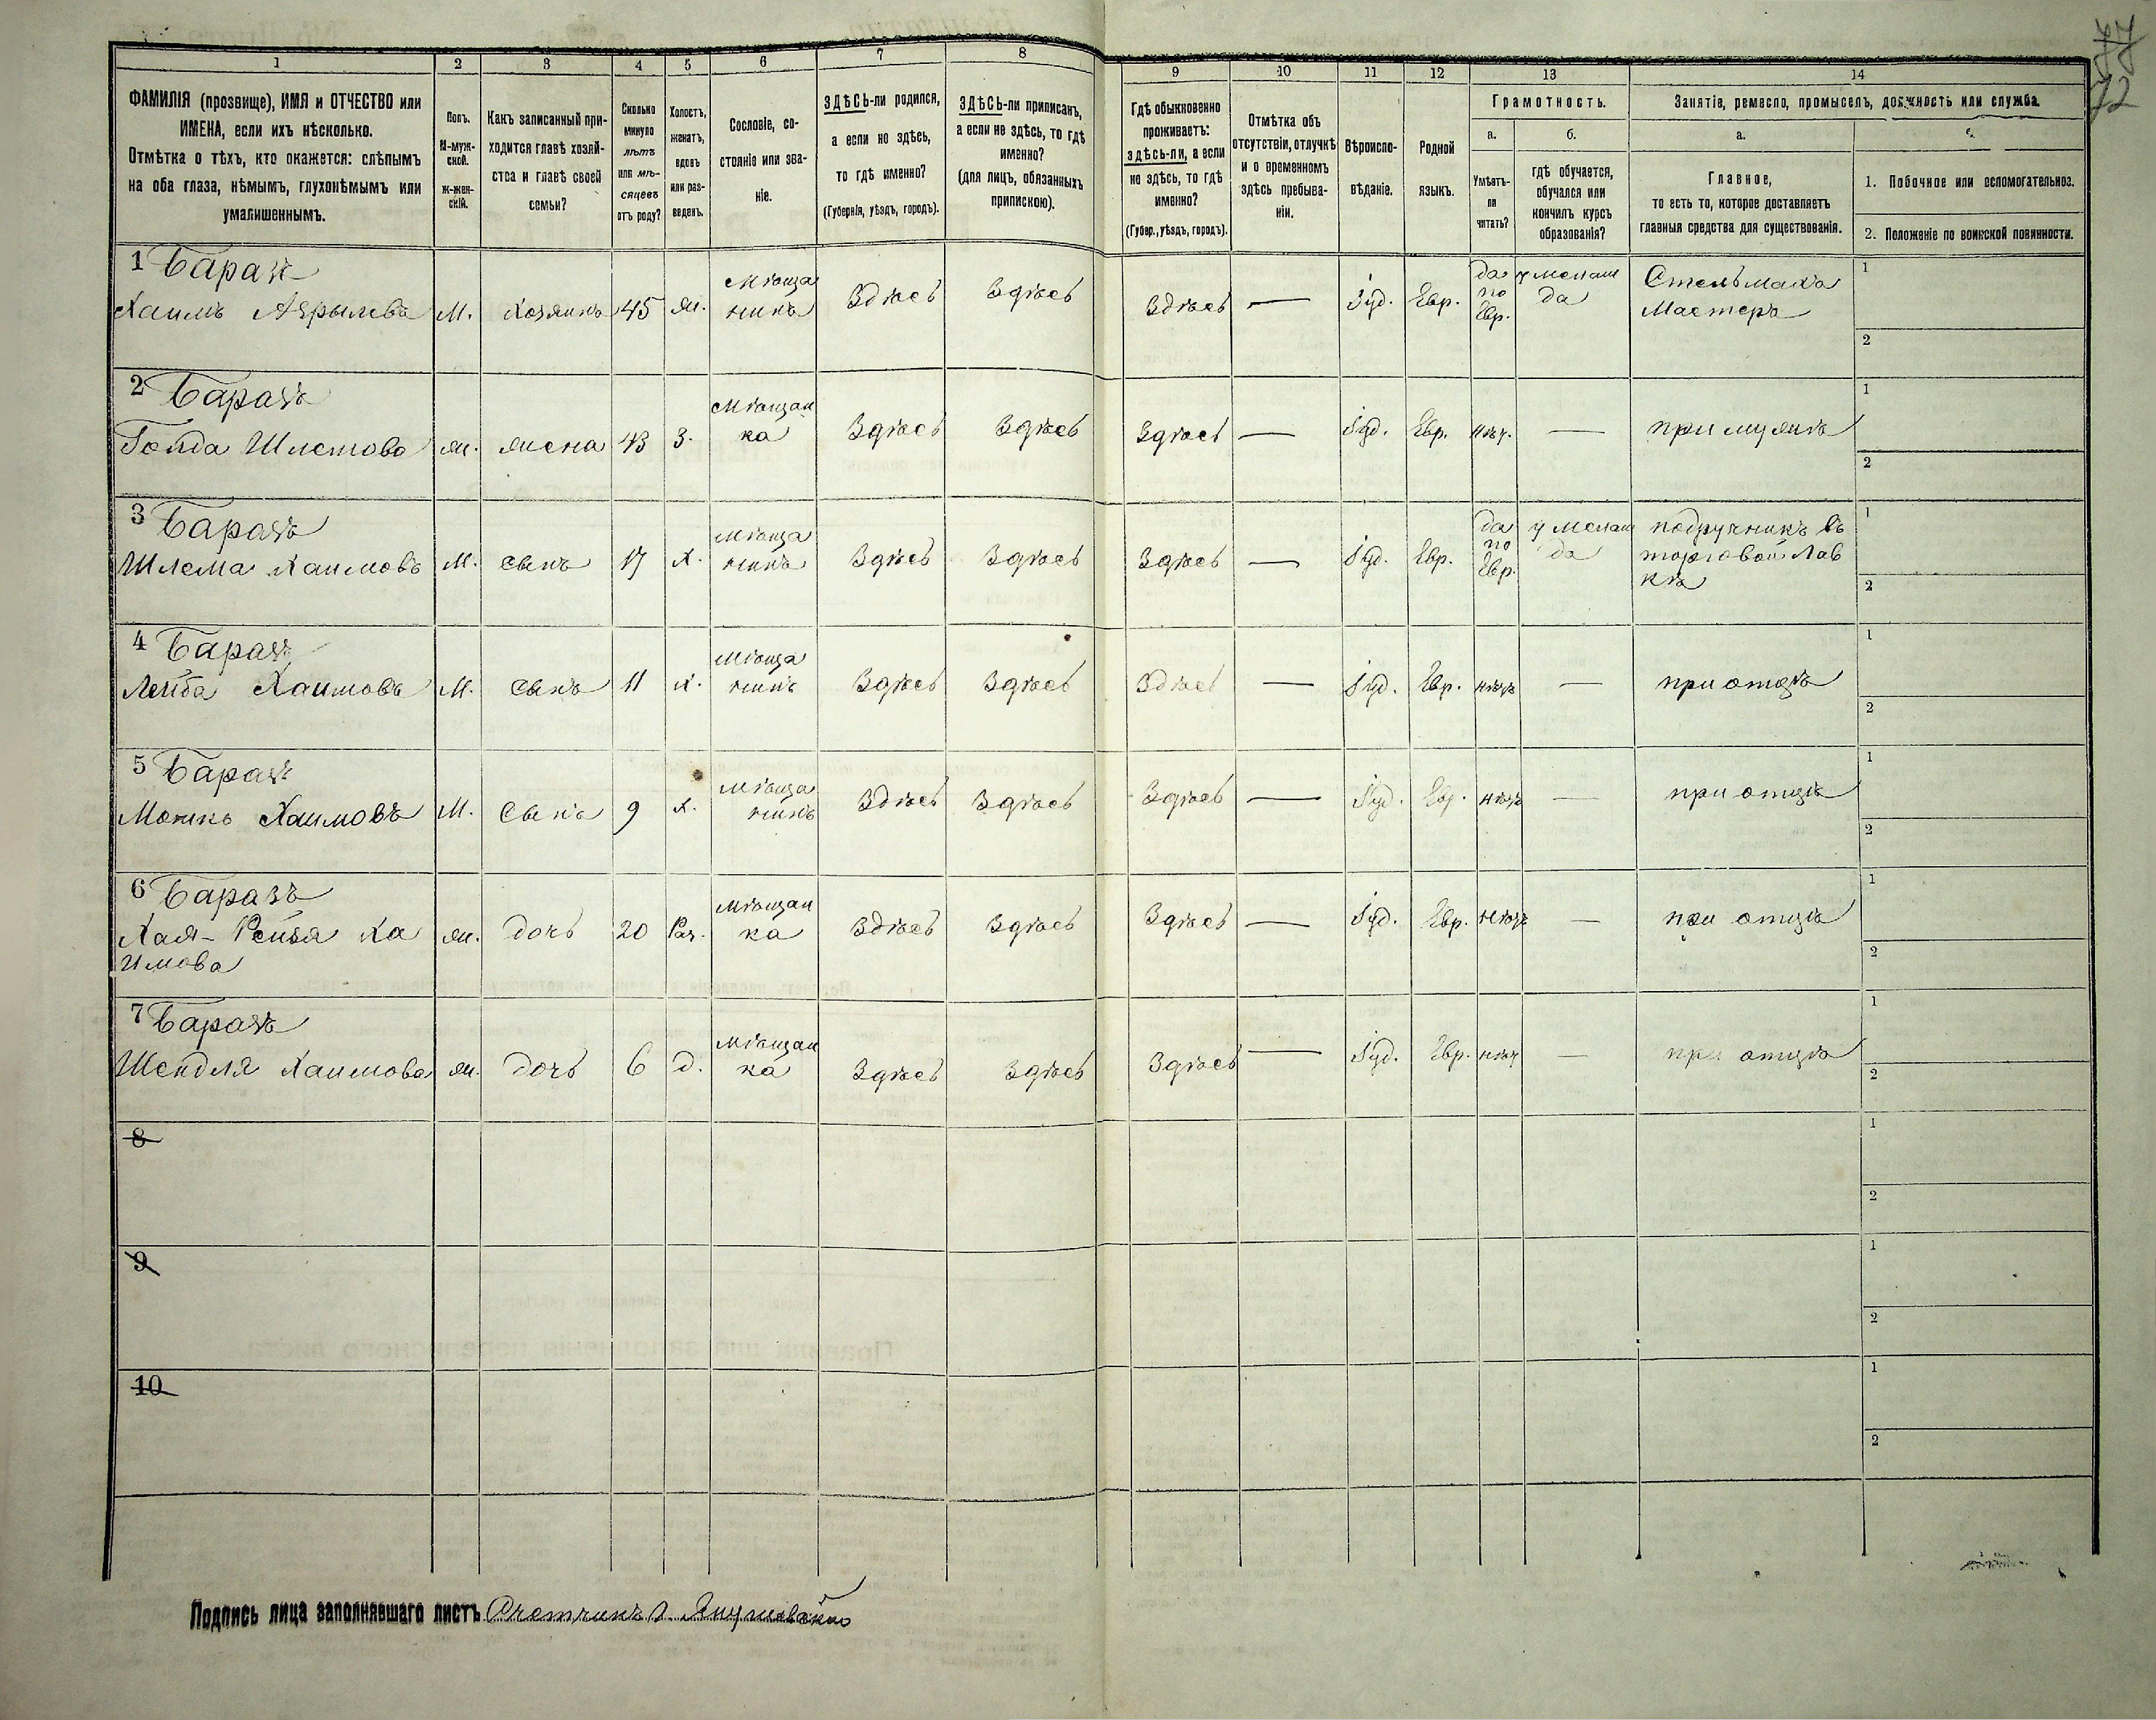 77
72
1 2 3 4 5 6 7 8 9 10 11 12 13 14
ФАМИЛІЯ (прозвище), ИМЯ и ОТЧЕСТВО или
ИМЕНА, если ихъ нѣсколько.
Отмѣтка о тѣхъ, кто окажется: слѣпымъ
на оба глаза, нѣмымъ, глухонѣмымъ или
умалишеннымъ.
Полъ.
М-муж-
ской.
Ж-жен-
скій.
Какъ записанный при-
ходится главѣ хозяй-
ства и главѣ своей
семьи?
Сколько
минуло
лѣтъ
или мѣ-
сяцевъ
отъ роду?
Холостъ,
женатъ,
вдовъ
или раз-
веденъ.
Сословіе, со-
стояніе или зва-
ніе.
ЗДѢСЬ-ли родился,
а если не здѣсь,
то гдѣ именно?
(Губернія, уѣздъ, городъ).
ЗДѢСЬ-ли приписанъ,
а если не здѣсь, то гдѣ
именно?
(для лицъ, обязанныхъ
припискою).
Гдѣ обыкновенно
проживаетъ:
здѣсь-ли, а если
не здѣсь, то гдѣ
именно?
(Губер., уѣздъ, городъ).
Отмѣтка объ
отсутствіи, отлучкѣ
и о временномъ
здѣсь пребыва-
ніи.
Вѣроиспо-
вѣданіе.
Родной
языкъ.
Грамотность.
а.
Умѣетъ-
ли
читать?
б.
гдѣ обучается,
обучался или
кончилъ курсъ
образованія?
Занятіе, ремесло, промыселъ, должность или служба.
а.
Главное,
то есть то, которое доставляетъ
главныя средства для существованія.
1. Побочное или вспомогательное.
2. Положеніе по воинской повинности.
1 Бараз
Хаимъ М. Хозяинъ 45 ж. Мѣща
нинъ Здѣсь Здѣсь Здѣсь — Іуд. Евр. да
по
Евр. у мелам
да Стельмахъ
Мастеръ 1
2
2 Баразъ
Гольда Шлемова ж. жена 43 З. Мѣщан
ка Здѣсь Здѣсь Здѣсь — Іуд. Евр. нѣт. — при мужѣ 1
2
3 Баразъ
Шлема Хаимовъ М. сынъ 17 Х. Мѣща
нинъ Здѣсь Здѣсь Здѣсь — Іуд. Евр. да
по
Евр. у мелам
да подручникъ въ
торговой Лав
кѣ 1
2
4 Баразъ
Лейба Хаимовъ М. сынъ 11 Х. Мѣща
нинъ Здѣсь Здѣсь Здѣсь — Іуд. Евр. нѣтъ — при отцѣ 1
2
5 Баразъ
Мошко Хаимовъ М. Сынъ 9 Х. Мѣща
нинъ Здѣсь Здѣсь Здѣсь — Іуд. Евр. нѣтъ — при отцѣ 1
2
6 Баразъ
Хая- Рейзя Ха
имова ж. дочь 20 Раз. Мѣщан
ка Здѣсь Здѣсь Здѣсь — Іуд. Евр. нѣтъ — при отцѣ 1
2
7 Баразъ
Шендля Хаимова ж. дочь 6 д. Мѣщан
ка Здѣсь Здѣсь Здѣсь — Іуд. Евр. нѣт — при отцѣ 1
2
8 1
2
9 1
2
10 1
2
Подпись лица заполнявшаго листъ Счетчикъ